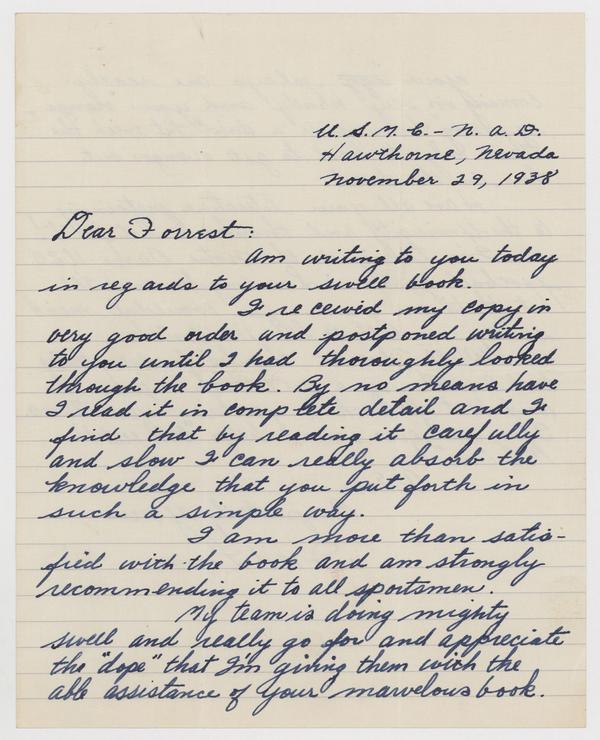 U. S. M. C. - N. A. D.
Hawthorne, Nevada
November 29, 1938
Dear Forrest:
Am writing to you today
in regards to your swell book.
I received my copy in
very good order and postponed writing
to you until I had thoroughly looked
through the book. By no means have
I read it in complete detail and I
find that by reading it carefully
and slow I can really absorb the
knowledge that you put forth in
such a simple way.
I am more than satis-
fied with the book and am strongly
recommending it to all sportsmen.
My team is doing mighty
swell and really go for and appreciate
the "dope" that I'm giving them with the
able assistance of your marvelous book.